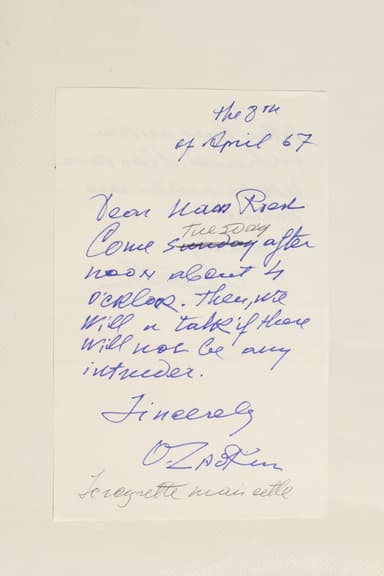 the 8th
of April 67
Dear
Come sunday Tuesday after
noon about 4
o'clock. Then, we
will a talk if there
will not be any
intruder.
Sincerely
O. Zadkin